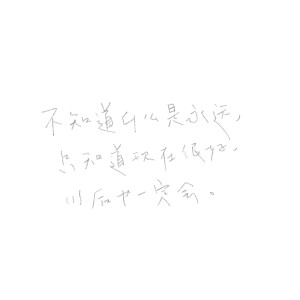 不知道什么是永远，
只知道现在很好。
以后也一定会。